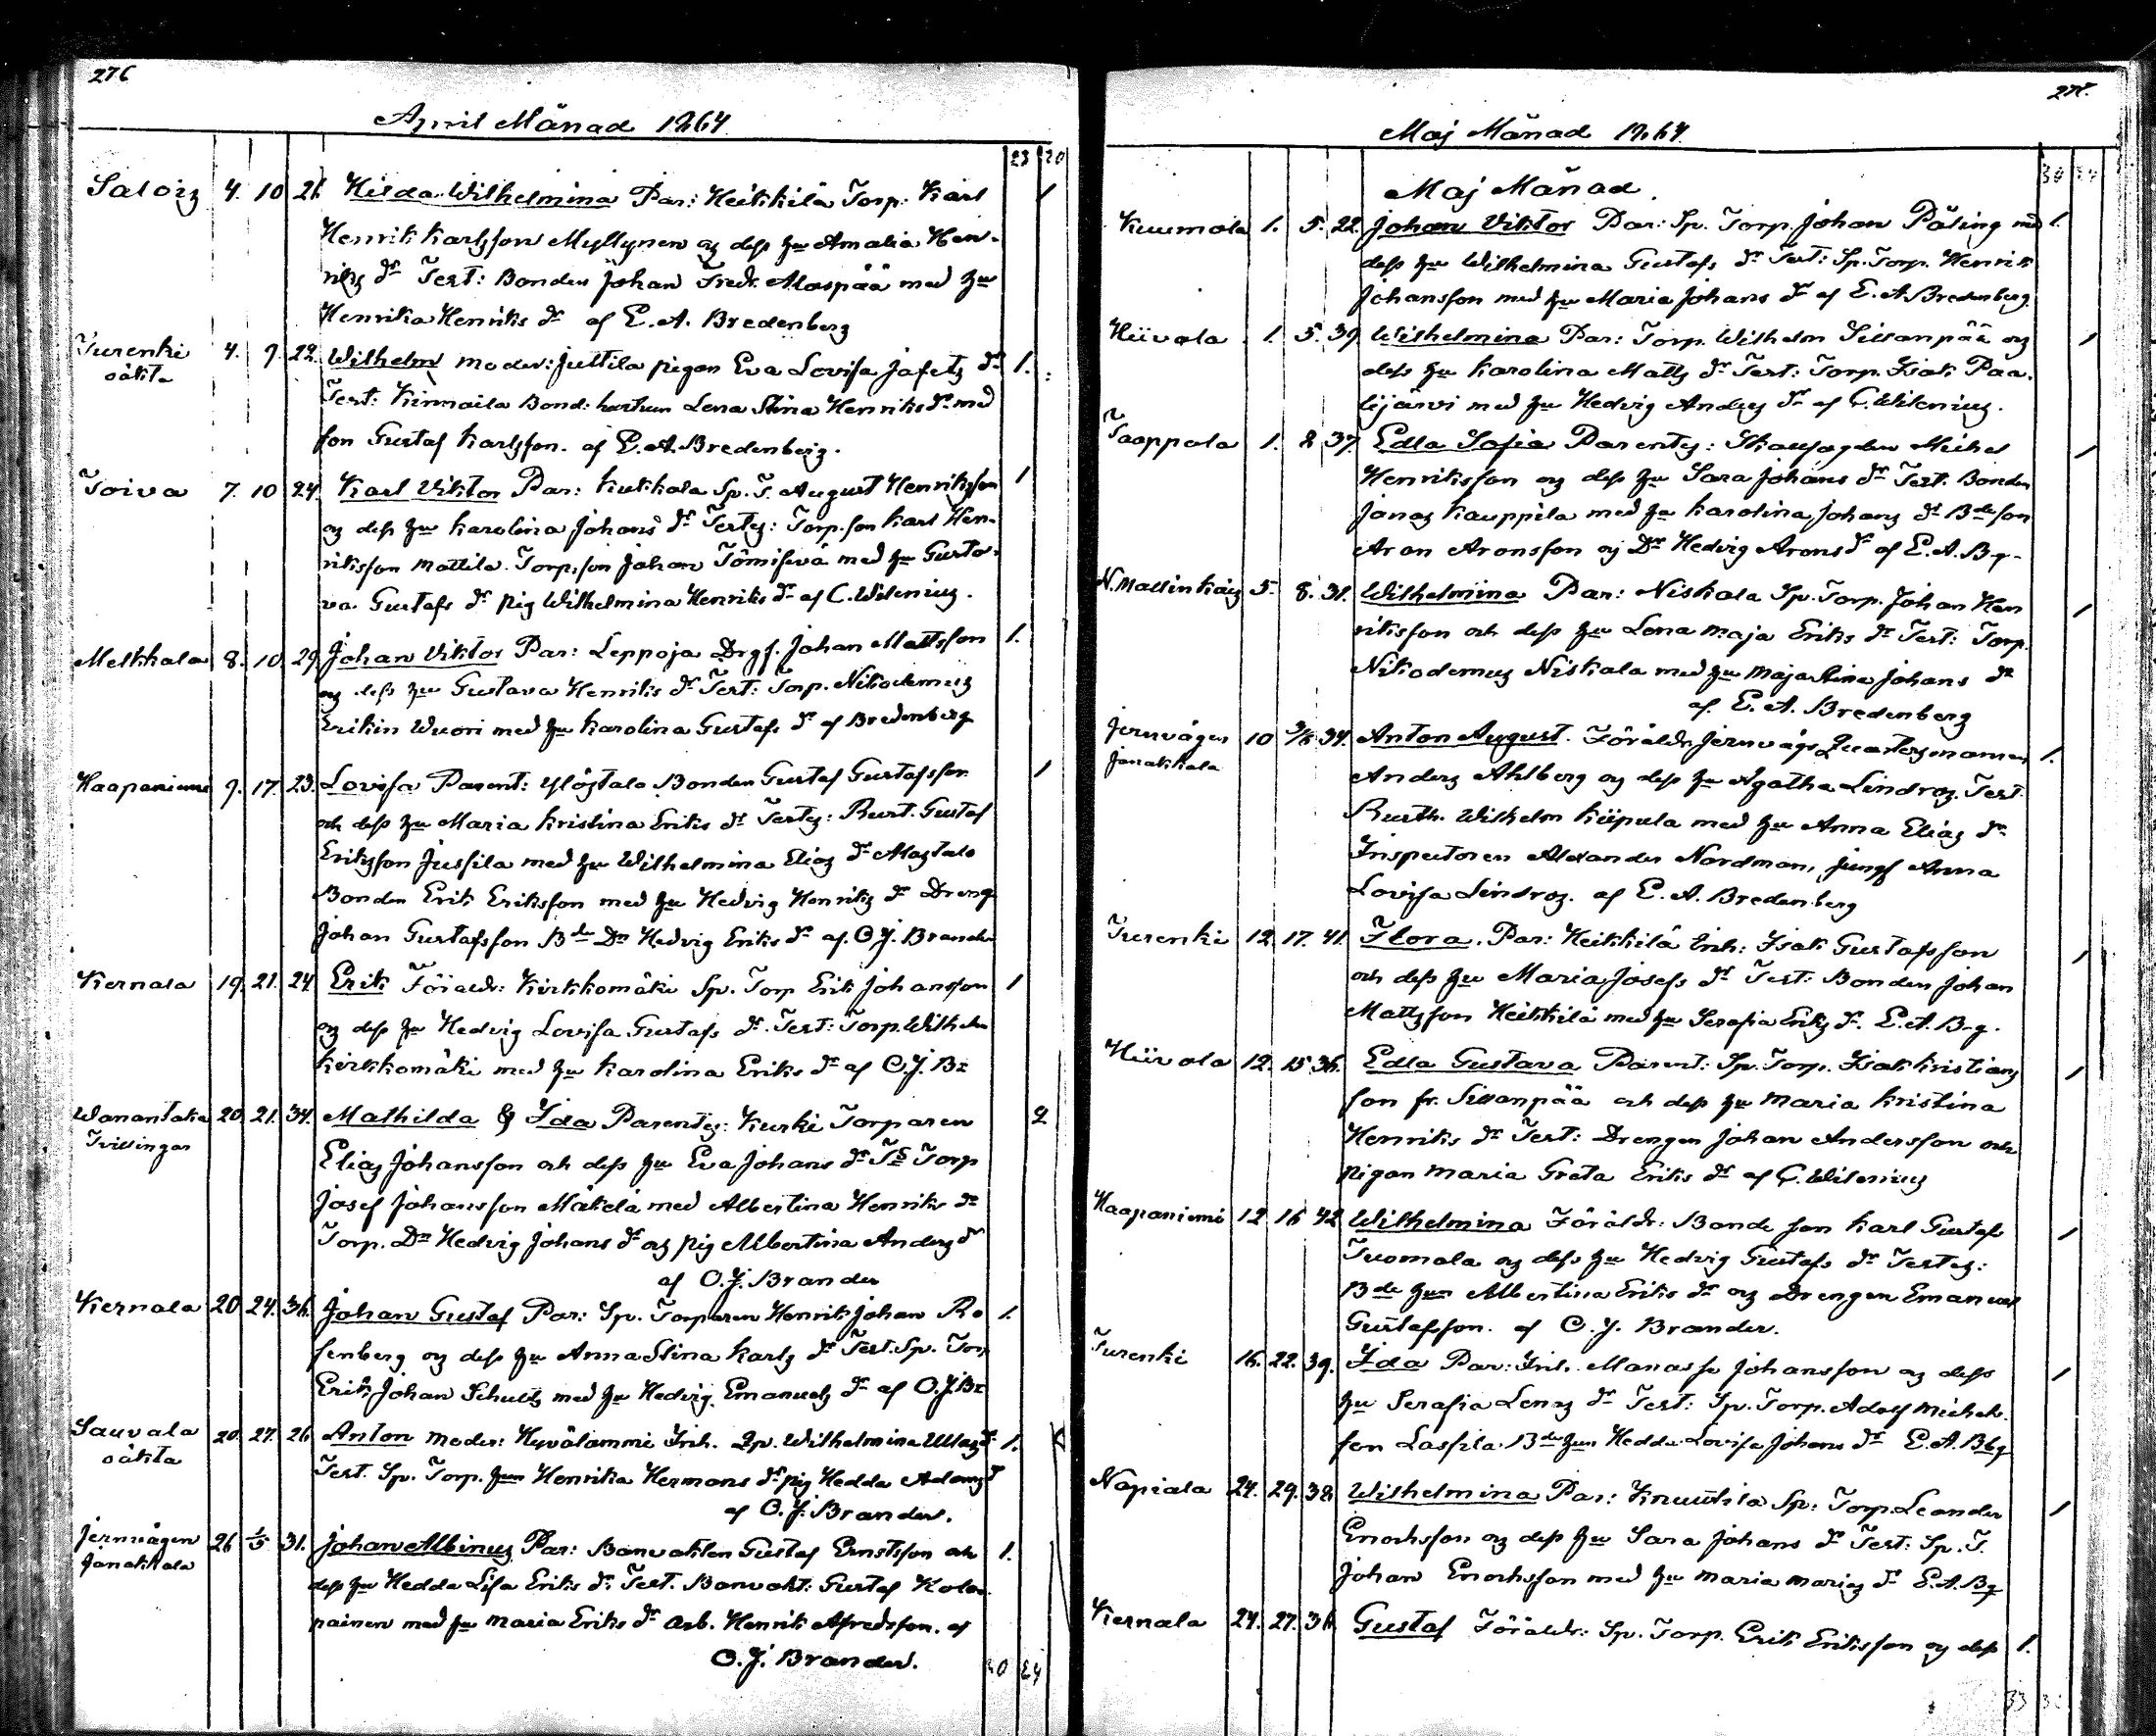 276
April Månad 1864
23 20
Saloiz 4. 10 26 Hilda Wilhelmina Par: Heikkilä Torp: Karl 1
Henrik Karlsson Myllynen og dess hu Amalia Hen-
riks dr Test: Bonden Johan Fredr. Alaspää med hu
Henrika Henriks dr af E. A. Bredenberg
Turenki 4. 9. 22. Wilhelm moder: Juttila pigan Eva Lovisa Jafetz dr 1.
oäkta
Test: Kinnaila Bond: hustrun Lena Stina Henriks dr med
son Gustaf Karlsson. af E. A. Bredenberg.
Toiva 7. 10 24. Karl Viktor Par: Kukkola Sp. T. August Henriksson 1
og dess hu Karolina Johans dr Testes: Torp. son Karl Hen-
riksson Mattila. Torp. son Johan Tömisevä med hu Gusta-
va Gustafs dr pig Wilhelmina Henriks dr af C. Wilenius.
Melkkala 8. 10 29 Johan Viktor Par: Leppoja Drgf. Johan Mattsson 1.
og dess hu Gustava Henriks dr Test: Torp. Nikodemus
Erikin Wuori med hu Karolina Gustafs dr af Bredenberg
Haapaniemi 9. 17. 23. Lovisa Parent: Ylöstalo Bonden Gustaf Gustafsson 1
och dess hu Maria Kristina Eriks dr Testes: Rust. Gustaf
Eriksson Jussila med hu Wilhelmina Elias dr Alastalo
Bonden Erik Eriksson med hu Hedvig Henriks dr Dreng
Johan Gustafsson Bde Dr Hedvig Eriks dr af O. J. Brander
Kernala 19. 21. 24 Erik Föräldr: Kirkkomäki Sp. Torp Erik Johansson 1
og dess hu Hedvig Lovisa Gustafs dr. Test: Torp. Wilhelm
Kirkkomäki med hu Karolina Eriks dr af O. J. Br
Wanantaka 20. 21. 34. Mathilda & Ida Parentes: Kurki Torparen 2
Tvillingar
Elias Johansson och dess hu Eva Johans dr Ts Torp
Josef Johansson Mäkelä med Albertina Henriks dr
Torp. Dr Hedvig Johans dr og pig Albertina Anders dr
af O. J. Brander
Kernala 20 24. 36 Johan Gustaf Par: Sp. Torparen Henrik Johan Ro 1.
senberg og dess hu Anna Stina Karls dr Test. Sp. Torp
Erik Johan Schultz med hu Hedvig Emanuels dr af O. J. Br
Sauvala 20. 27. 26 Anton moder: Hyvälammi Inh. Qv. Wilhelmina Ullas dr 1.
oäkta
Test. Sp. Torp. hun Henrika Hermans dr pig Hedda Adams d
af O. J. Brander.
Jernvägen 26 1/5 31. Johan Albinus Par: Banvakten Gustaf Ernstsson och 1.
Janakkala
dess hu Hedda Lisa Eriks dr Test. Banvakt: Gustaf Kolo-
painen med hu Maria Eriks dr Arb. Henrik Alfredsson. af
O. J. Brander.
30 24
277.
Maj Månad 1864
30 24
Maj Månad
Kuumola 1. 5. 22. Johan Viktor Par: Sp. Torp. Johan Påling med 1.
dess hu Wilhelmina Gustafs dr Test: Sp. Torp. Henrik
Johansson med hu Maria Johans dr af E. A. Bredenberg.
Hiivola 1. 5. 39 Wilhelmina Par: Torp. Wilhelm Sillanpää og 1
dess hu Karolina Matts dr Test: Torp. Isak Paa-
lijärvi med hu Hedvig Anders dr af C. Wilenius.
Taappola 1. 8 37. Edla Sofia Parentes: Skaufogden Michel 1
Henriksson og dess hu Sara Johans dr Test. Bonden
Jonas Kauppila med hu Karolina Johans dr Bde son
Aron Aronsson og Dr Hedvig Arons dr af E. A. B-g-
N. Mallinkais 5. 8. 31. Wilhelmina Par: Niskala Sp. Torp. Johan Hen 1
riksson och dess hu Lena Maja Eriks dr Test: Torp.
Nikodemus Niskala med hu Maja Stina Johans dr
af. E. A. Bredenberg
Jernvägen 10 34. Anton August. Föräldr Jernvägs Quartersmannen 1.
Janakkala
Anders Ahlberg og dess hu Agatha Lindroz. Test.
Rusth. Wilhelm Kiipula med hu Anna Elias dr
Inspectoren Alexander Nordman, jungf Anna
Lovisa Lindroz. af E. A. Bredenberg
Turenki 12. 17. 41. Flora. Par: Heikkilä Inh: Isak Gustafsson 1
och dess hu Maria Josefs dr Test: Bonden Johan
Mattsson Heikkilä med hu Serafia Eriks dr. E. A. B-g.
Hiivola 12. 15 36. Edla Gustava Parent: Sp. Torp. Isak Kristians 1
son fr. Sillanpää och dess hu Maria Kristina
Henriks dr Test: Drengen Johan Andersson och
pigan Maria Greta Eriks dr af C. Wilenius
Haapaniemi 12 16 42 Wilhelmina Föräldr: Bonde son Karl Gustaf 1
Tuomala og dess hu Hedvig Gustafs dr Testes:
Bde hun Albertina Eriks dr og Drengen Emanuel
Gustafsson. af O. J. Brander.
Turenki 16. 22. 39. Ida Par: Inh. Manasse Johansson og dess 1
hu Serafia Lenas dr Test: Sp. Torp. Adolf Michels-
son Lassila. Bde hun Hedda Lovisa Johans dr E. A. Bbg
Napiala 24. 29. 38 Wilhelmina Par: Knuutila Sp: Torp. Leander 1
Enochsson og dess hu Sara Johans dr Test: Sp. T.
Johan Enochsson med hu Maria Marias dr E. A. Bg
Kernala 24. 27. 36 Gustaf Föräldr: Sp. Torp. Erik Eriksson og dess 1.
33